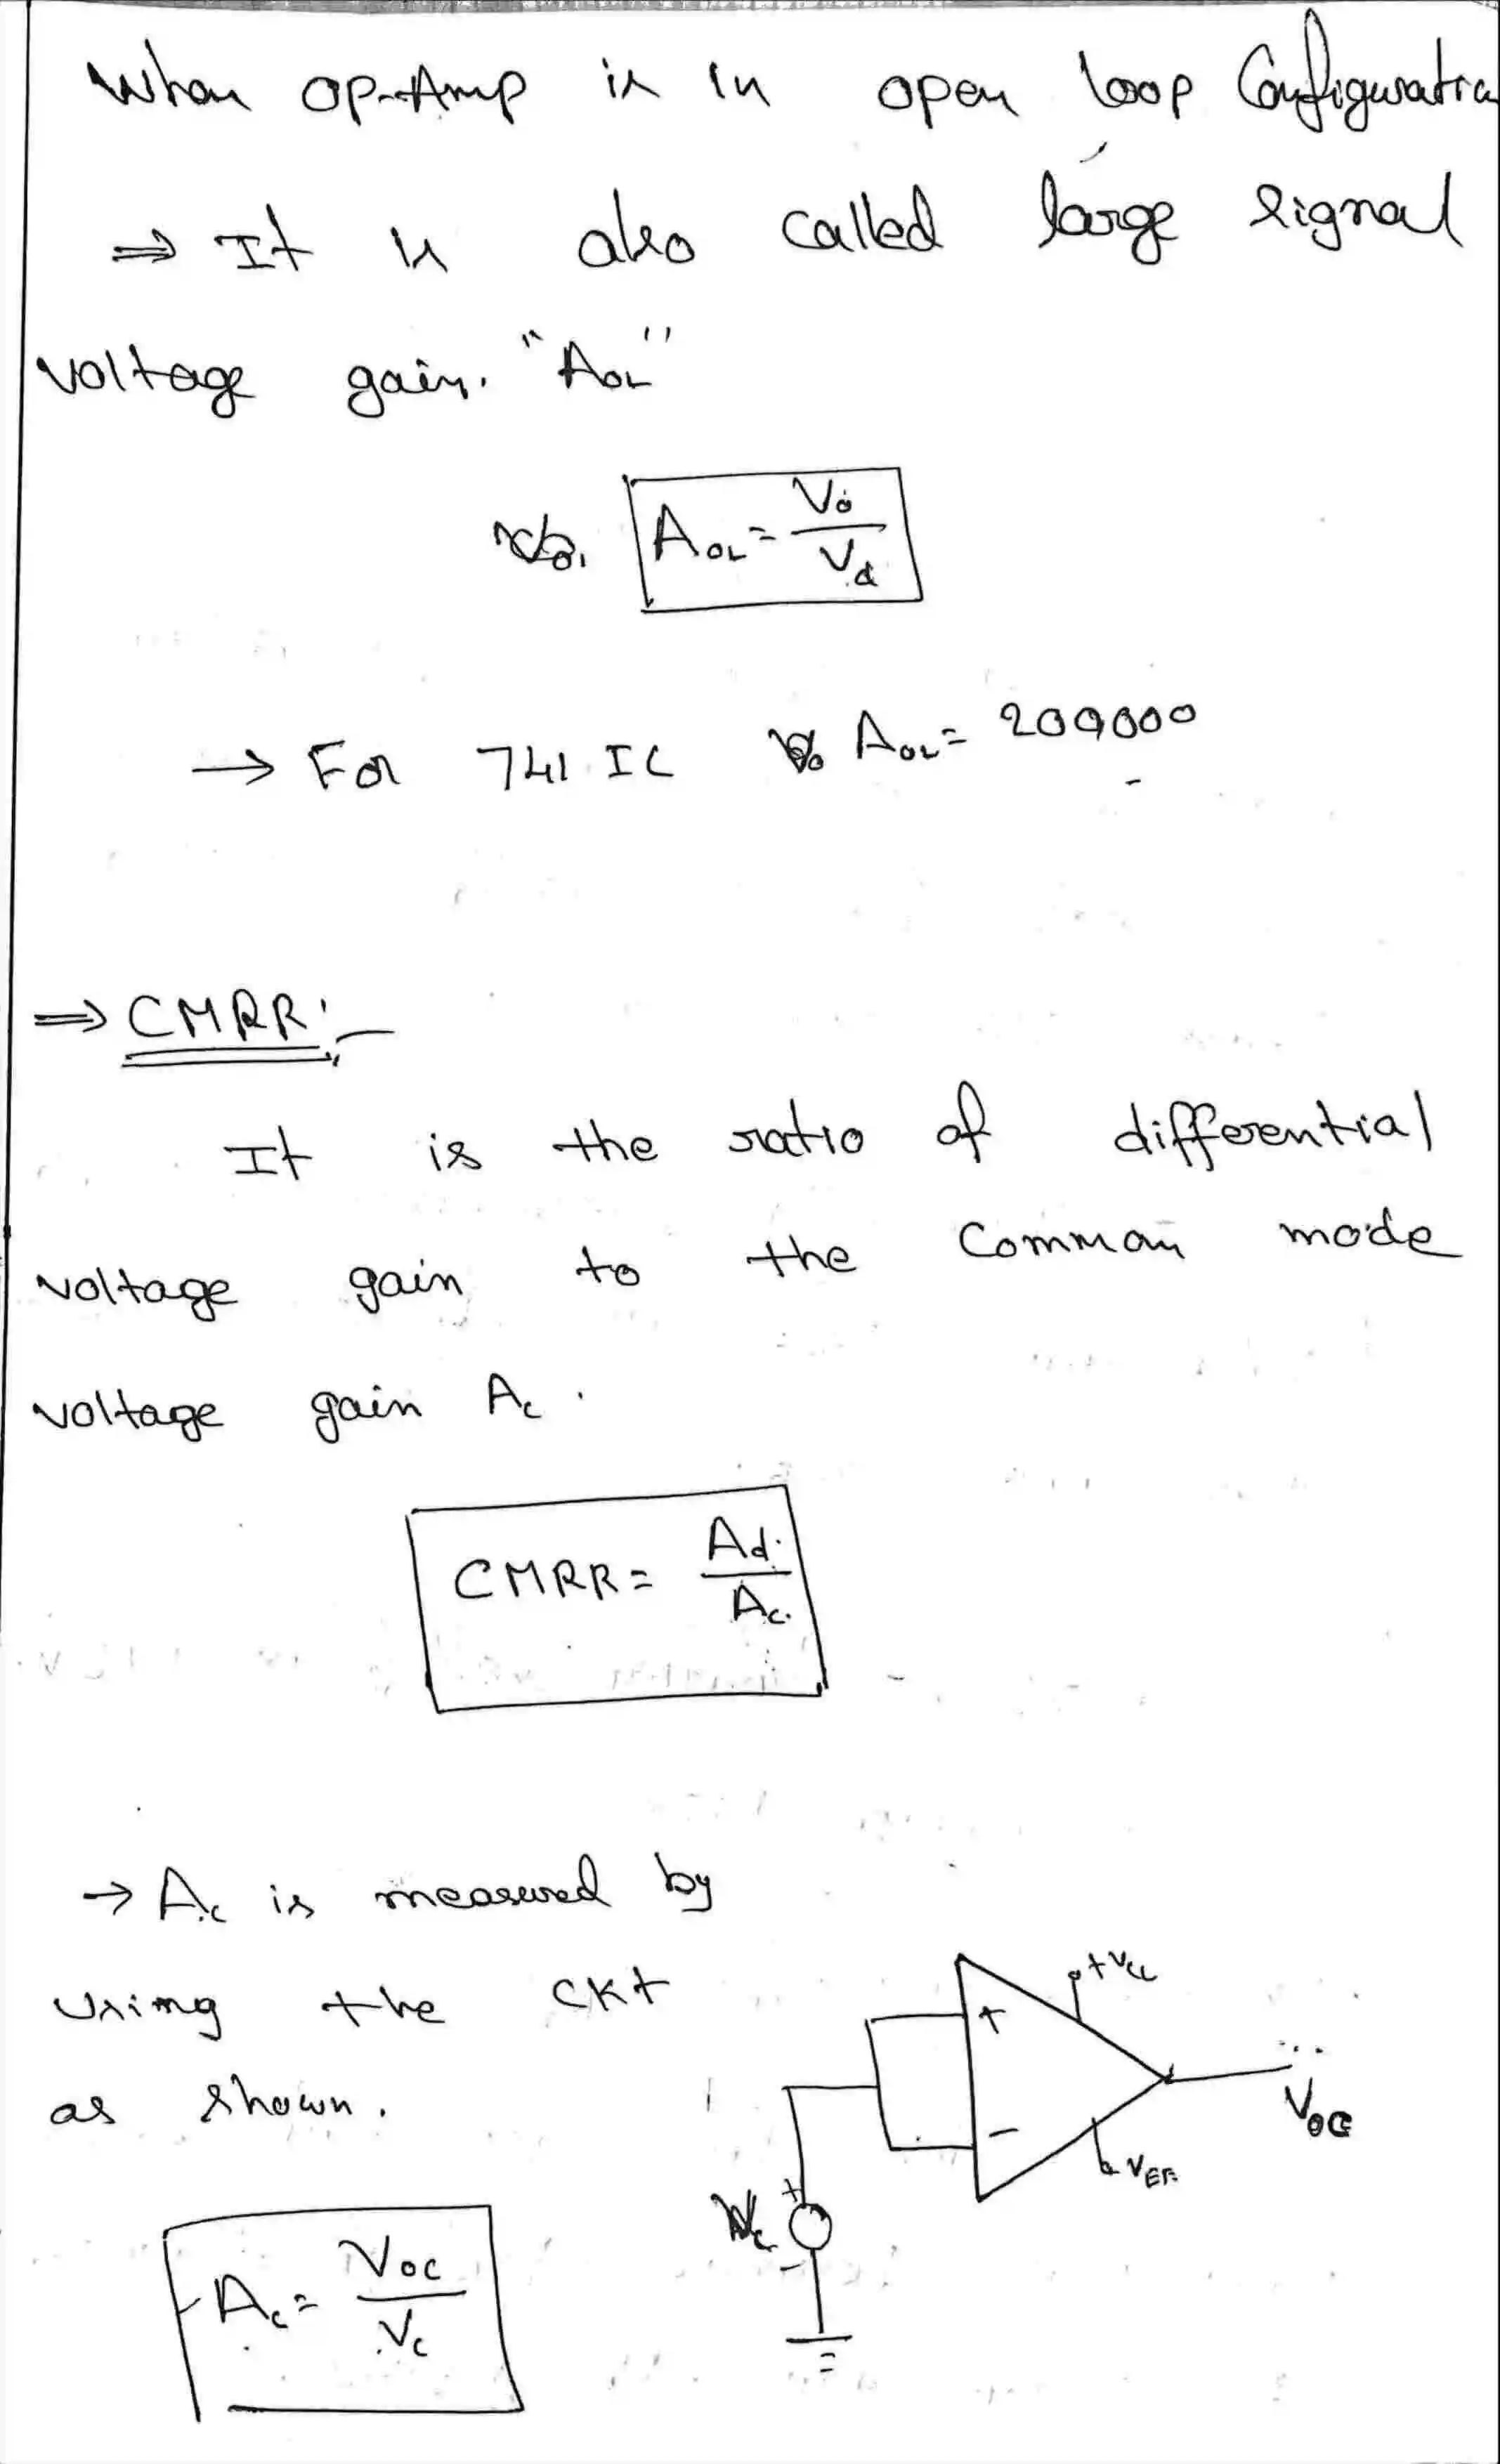 When OP-Amp is in open loop Configuration
⇒ It is also called large signal
voltage gain. "AOL"
AOL = Vo / Vd
→ For 741 IC AOL = 200000
⇒ CMRR :-
It is the ratio of differential
voltage gain to the Common mode
voltage gain Ac .
CMRR = Ad / Ac
→ Ac is measured by
using the CKt
as shown .
+VCC
+
-
VOC
VEE
+
Vc
-
Ac = VOC / Vc